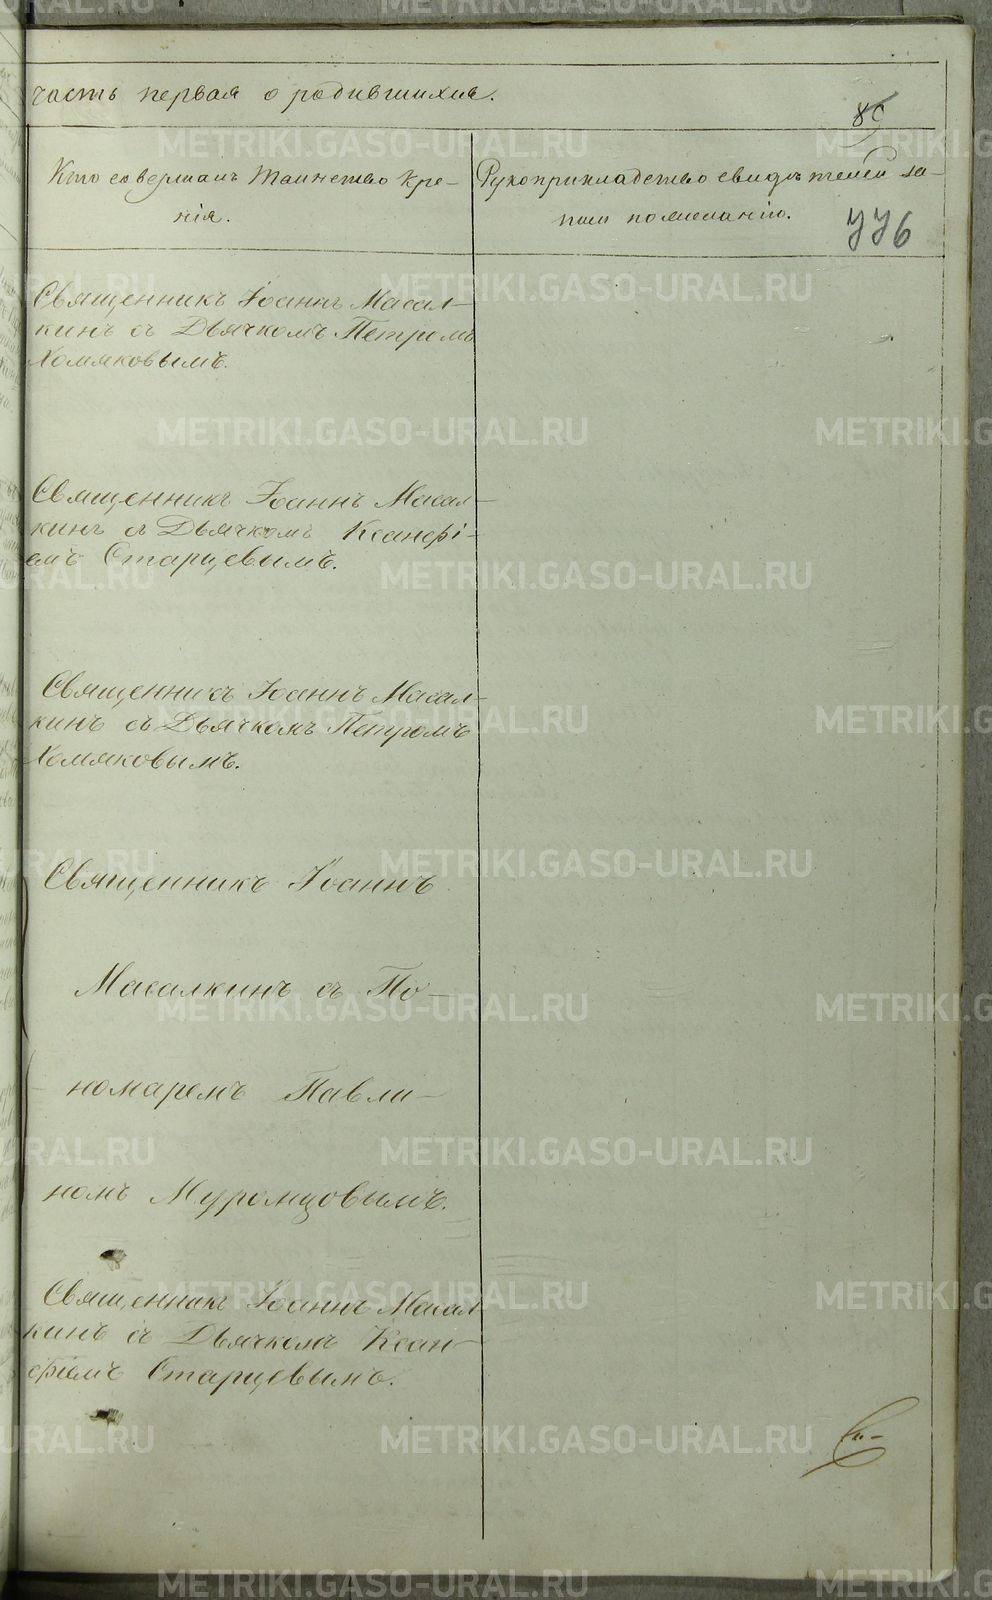 часть первая о родившихся.
89
Кто совершалъ таинство кре-
нія.
Рукоприкладство свидѣтелей за-
писи по желанію.
776
Священникъ Іоаннъ Масал-
кинъ съ Дьячкомъ Петромъ
Хомяковымъ.
Священникъ Іоаннъ Масал-
кинъ съ Дьячкомъ Ксанфі-
емъ Старцевымъ.
Священникъ Іоаннъ Масал-
кинъ съ Дьячкомъ Петромъ
Хомяковымъ.
Священникъ Іоаннъ
Масалкинъ съ По-
номаремъ Павли-
номъ Муромцовымъ.
Священникъ Іоаннъ Масал
кинъ съ Дьячкомъ Ксан-
фіемъ Старцевымъ.
METRIKI.GASO-URAL.RU